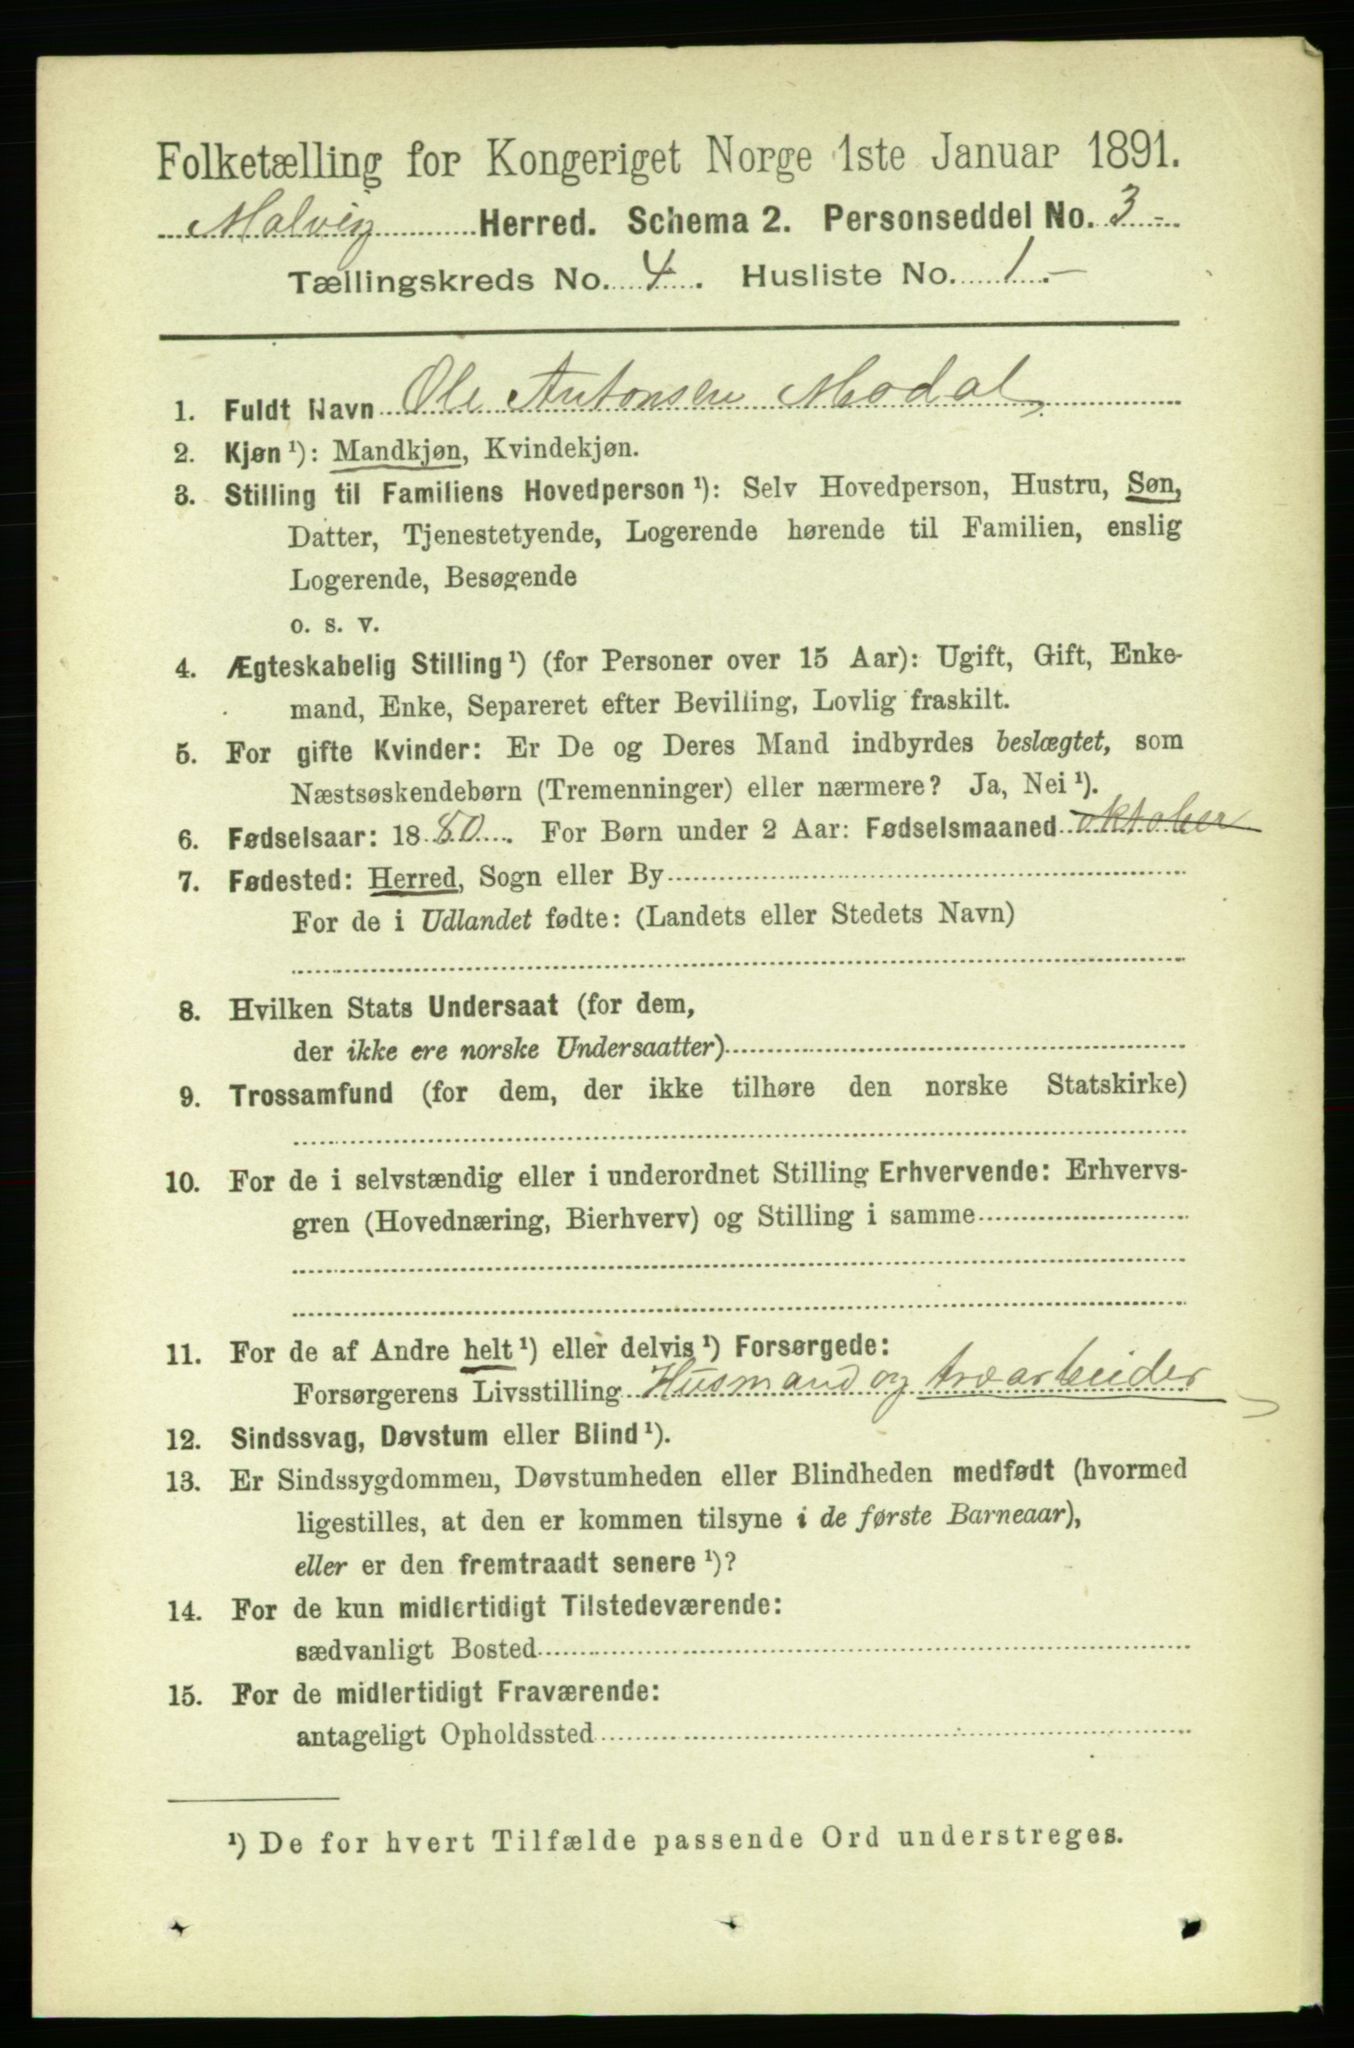 Folketælling for Kongeriget Norge 1ste Januar 1891.
Malvig Herred. Schema 2. Personseddel No. 3.-
Tællingskreds No. 4. Husliste No. 1.-
1. Fuldt Navn Ole Antonsen Modal
2. Kjøn ¹): Mandkjøn, Kvindekjøn.
3. Stilling til Familiens Hovedperson ¹): Selv Hovedperson, Hustru, Søn,
Datter, Tjenestetyende, Logerende hørende til Familien, enslig
Logerende, Besøgende
o. s. v.
4. Ægteskabelig Stilling ¹) (for Personer over 15 Aar): Ugift, Gift, Enke-
mand, Enke, Separeret efter Bevilling, Lovlig fraskilt.
5. For gifte Kvinder: Er De og Deres Mand indbyrdes beslægtet, som
Næstsøskendebørn (Tremenninger) eller nærmere? Ja, Nei ¹).
6. Fødselsaar: 1880. For Børn under 2 Aar: Fødselsmaaned oktober
7. Fødested: Herred, Sogn eller By
For de i Udlandet fødte: (Landets eller Stedets Navn)
8. Hvilken Stats Undersaat (for dem,
der ikke ere norske Undersaatter)
9. Trossamfund (for dem, der ikke tilhøre den norske Statskirke)
10. For de i selvstændig eller i underordnet Stilling Erhvervende: Erhvervs-
gren (Hovednæring, Bierhverv) og Stilling i samme
11. For de af Andre helt ¹) eller delvis ¹) Forsørgede:
Forsørgerens Livsstilling Husmand og træarbeider
12. Sindssvag, Døvstum eller Blind ¹).
13. Er Sindssygdommen, Døvstumheden eller Blindheden medfødt (hvormed
ligestilles, at den er kommen tilsyne i de første Barneaar),
eller er den fremtraadt senere ¹)?
14. For de kun midlertidigt Tilstedeværende:
sædvanligt Bosted
15. For de midlertidigt Fraværende:
antageligt Opholdssted
¹) De for hvert Tilfælde passende Ord understreges.